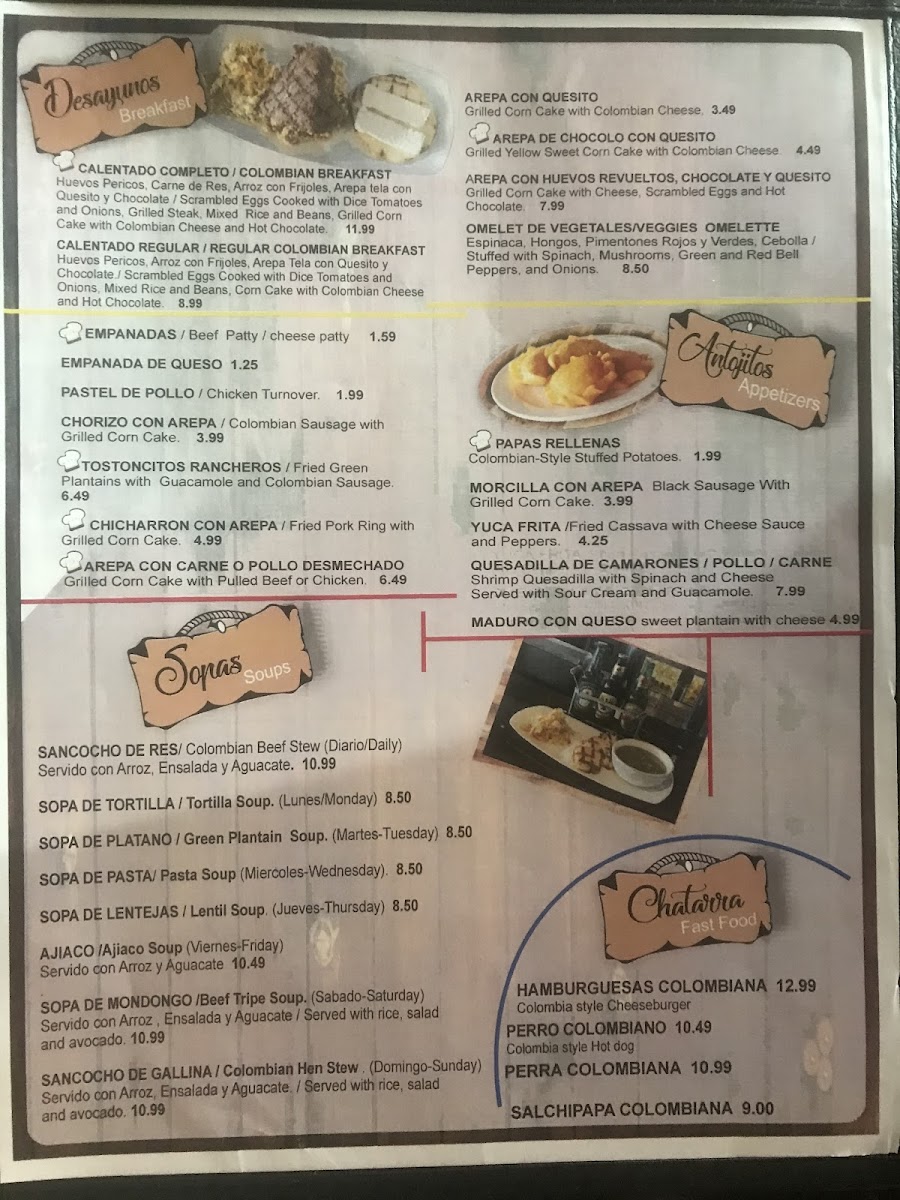 Desayunos
Breakfast
CALENTADO COMPLETO / COLOMBIAN BREAKFAST
Huevos Pericos, Carne de Res, Arroz con Frijoles, Arepa tela con
Quesito y Chocolate / Scrambled Eggs Cooked with Dice Tomatoes
and Onions, Grilled Steak, Mixed Rice and Beans, Grilled Corn
Cake with Colombian Cheese and Hot Chocolate. 11.99
CALENTADO REGULAR / REGULAR COLOMBIAN BREAKFAST
Huevos Pericos, Arroz con Frijoles, Arepa Tela con Quesito y
Chocolate./ Scrambled Eggs Cooked with Dice Tomatoes and
Onions, Mixed Rice and Beans, Corn Cake with Colombian Cheese
and Hot Chocolate. 8.99
AREPA CON QUESITO
Grilled Corn Cake with Colombian Cheese. 3.49
AREPA DE CHOCOLO CON QUESITO
Grilled Yellow Sweet Corn Cake with Colombian Cheese. 4.49
AREPA CON HUEVOS REVUELTOS, CHOCOLATE Y QUESITO
Grilled Corn Cake with Cheese, Scrambled Eggs and Hot
Chocolate. 7.99
OMELET DE VEGETALES/VEGGIES OMELETTE
Espinaca, Hongos, Pimentones Rojos y Verdes, Cebolla /
Stuffed with Spinach, Mushrooms, Green and Red Bell
Peppers, and Onions. 8.50
EMPANADAS / Beef Patty / cheese patty 1.59
EMPANADA DE QUESO 1.25
PASTEL DE POLLO / Chicken Turnover. 1.99
CHORIZO CON AREPA / Colombian Sausage with
Grilled Corn Cake. 3.99
TOSTONCITOS RANCHEROS / Fried Green
Plantains with Guacamole and Colombian Sausage.
6.49
CHICHARRON CON AREPA / Fried Pork Ring with
Grilled Corn Cake. 4.99
AREPA CON CARNE O POLLO DESMECHADO
Grilled Corn Cake with Pulled Beef or Chicken. 6.49
Antojitos
Appetizers
PAPAS RELLENAS
Colombian-Style Stuffed Potatoes. 1.99
MORCILLA CON AREPA Black Sausage With
Grilled Corn Cake. 3.99
YUCA FRITA /Fried Cassava with Cheese Sauce
and Peppers. 4.25
QUESADILLA DE CAMARONES / POLLO / CARNE
Shrimp Quesadilla with Spinach and Cheese
Served with Sour Cream and Guacamole. 7.99
MADURO CON QUESO sweet plantain with cheese 4.99
Sopas
Soups
SANCOCHO DE RES/ Colombian Beef Stew (Diario/Daily)
Servido con Arroz, Ensalada y Aguacate. 10.99
SOPA DE TORTILLA / Tortilla Soup. (Lunes/Monday) 8.50
SOPA DE PLATANO / Green Plantain Soup. (Martes-Tuesday) 8.50
SOPA DE PASTA/ Pasta Soup (Miercoles-Wednesday). 8.50
SOPA DE LENTEJAS / Lentil Soup. (Jueves-Thursday) 8.50
AJIACO /Ajiaco Soup (Viernes-Friday)
Servido con Arroz y Aguacate 10.49
SOPA DE MONDONGO /Beef Tripe Soup. (Sabado-Saturday)
Servido con Arroz , Ensalada y Aguacate / Served with rice, salad
and avocado. 10.99
SANCOCHO DE GALLINA / Colombian Hen Stew . (Domingo-Sunday)
Servido con Arroz, Ensalada y Aguacate. / Served with rice, salad
and avocado. 10.99
Chatarra
Fast Food
HAMBURGUESAS COLOMBIANA 12.99
Colombia style Cheeseburger
PERRO COLOMBIANO 10.49
Colombia style Hot dog
PERRA COLOMBIANA 10.99
SALCHIPAPA COLOMBIANA 9.00